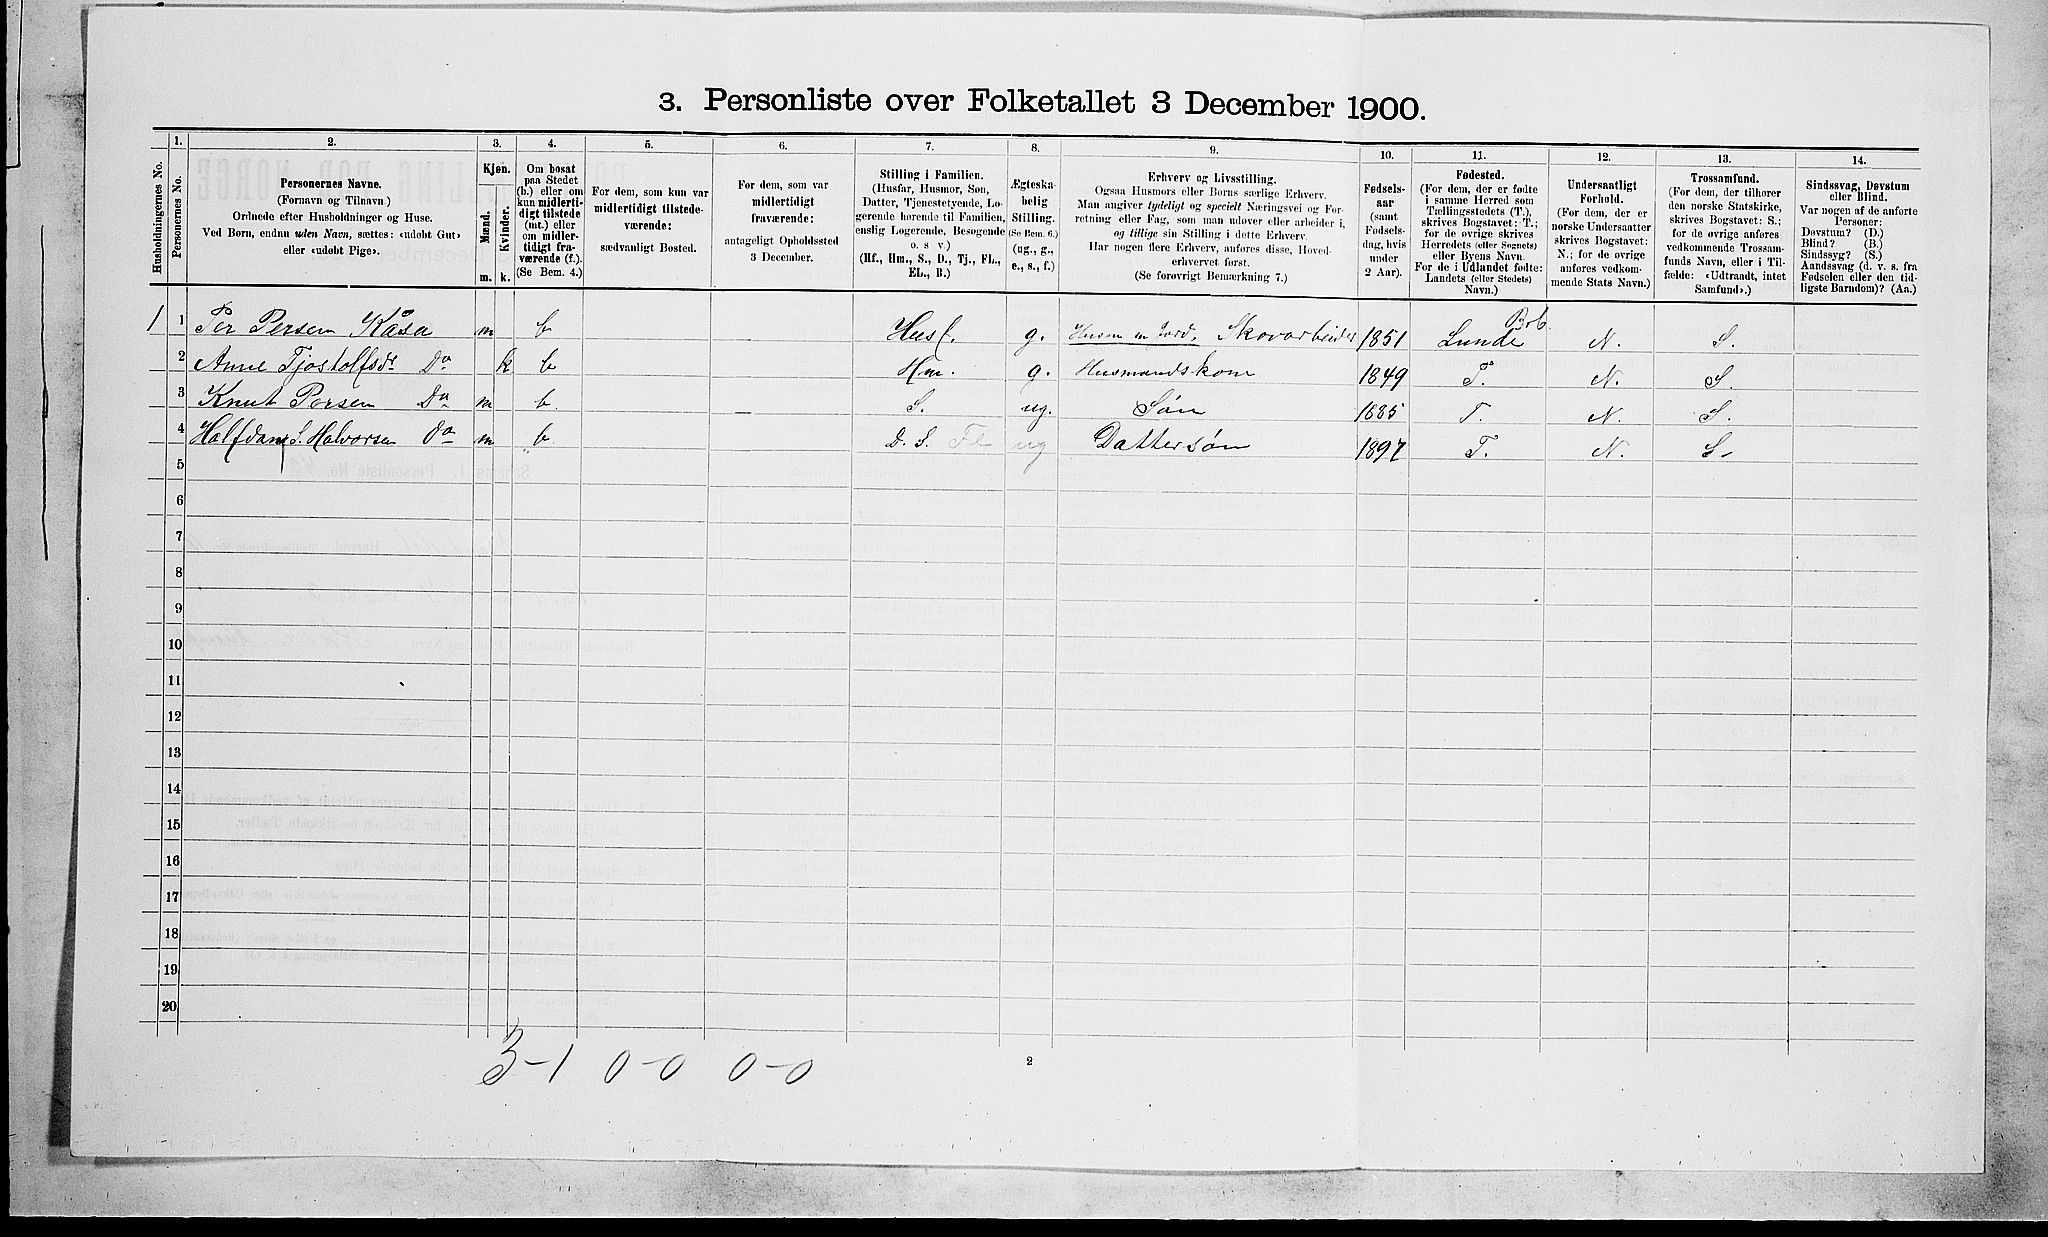 3. Personliste over Folketallet 3 December 1900.
Husholdningernes No.
1.
Personernes No.
2.
Personernes Navne.
(Fornavn og Tilnavn.)
Ordnede efter Husholdninger og Huse.
Ved Børn, endnu uden Navn, sættes: «udøbt Gut»
eller «udøbt Pige».
3.
Kjøn.
Mænd.
Kvinder.
m. k.
4.
Om bosat
paa Stedet
(b.) eller om
kun midlerti-
digt tilstede
(mt.) eller
om midler-
tidigt fra-
værende (f.).
(Se Bem. 4.)
5.
For dem, som kun var
midlertidigt tilstede-
værende:
sædvanligt Bosted.
6.
For dem, som var
midlertidigt
fraværende:
antageligt Opholdssted
3 December.
7.
Stilling i Familien.
(Husfar, Husmor, Søn,
Datter, Tjenestetyende, Lo-
gerende hørende til Familien,
enslig Logerende, Besøgende
o. s v.)
(Hf., Hm., S., D., Tj., FL.,
EL., B.)
8.
Ægteska-
belig
Stilling.
(Se Bem. 6.)
(ug., g.,
e., s., f.)
9.
Erhverv og Livsstilling.
Ogsaa Husmors eller Børns særlige Erhverv.
Man angiver tydeligt og specielt Næringsvei og For-
retning eller Fag, som man udøver eller arbeider i,
og tillige sin Stilling i dette Erhverv.
Har nogen flere Erhverv, anføres disse, Hoved-
erhvervet først.
(Se forøvrigt Bemærkning 7.)
10.
Fødsels-
aar
(samt
Fødsels-
dag, hvis
under
2 Aar).
11.
Fødested.
(For dem, der er fødte
i samme Herred som
Tællingsstedets (T.),
skrives Bogstavet: T.;
for de øvrige skrives
Herredets (eller Sognets)
eller Byens Navn.
For de i Udlandet fødte:
Landets (eller Stedets)
Navn.)
12.
Undersaatligt
Forhold.
(For dem, der er
norske Undersaatter
skrives Bogstavet:
N.; for de øvrige
anføres vedkom-
mende Stats Navn.)
13.
Trossamfund.
(For dem, der tilhører
den norske Statskirke,
skrives Bogstavet: S.;
for de øvrige anføres
vedkommende Trossam-
funds Navn, eller i Til-
fælde: «Udtraadt, intet
Samfund».)
14.
Sindssvag, Døvstum
eller Blind.
Var nogen af de anførte
Personer:
Døvstum? (D.)
Blind? (B.)
Sindssyg? (S.)
Aandssvag (d. v. s. fra
Fødselen eller den tid-
ligste Barndom)? (Aa.)
1 1 Per Persen Kåsa m b Husf. g. Husm m Jord. Skovarbeider 1851 Lunde Brb. N. S.
2 Anne Tjostolfsdr Do k b Hm. g. Husmandskone 1849 T. N. S.
3 Knut Persen Do m b. S. ug. Søn 1885 T. N. S.
4 Halfdan S. Halvorsen Do m b D. S. Fl ug Dattersøn 1897 T. N. S.
5
6
7
8
9
10
11
12
13
14
15
16
17
18
19
20
3-1 0-0 0-0
2